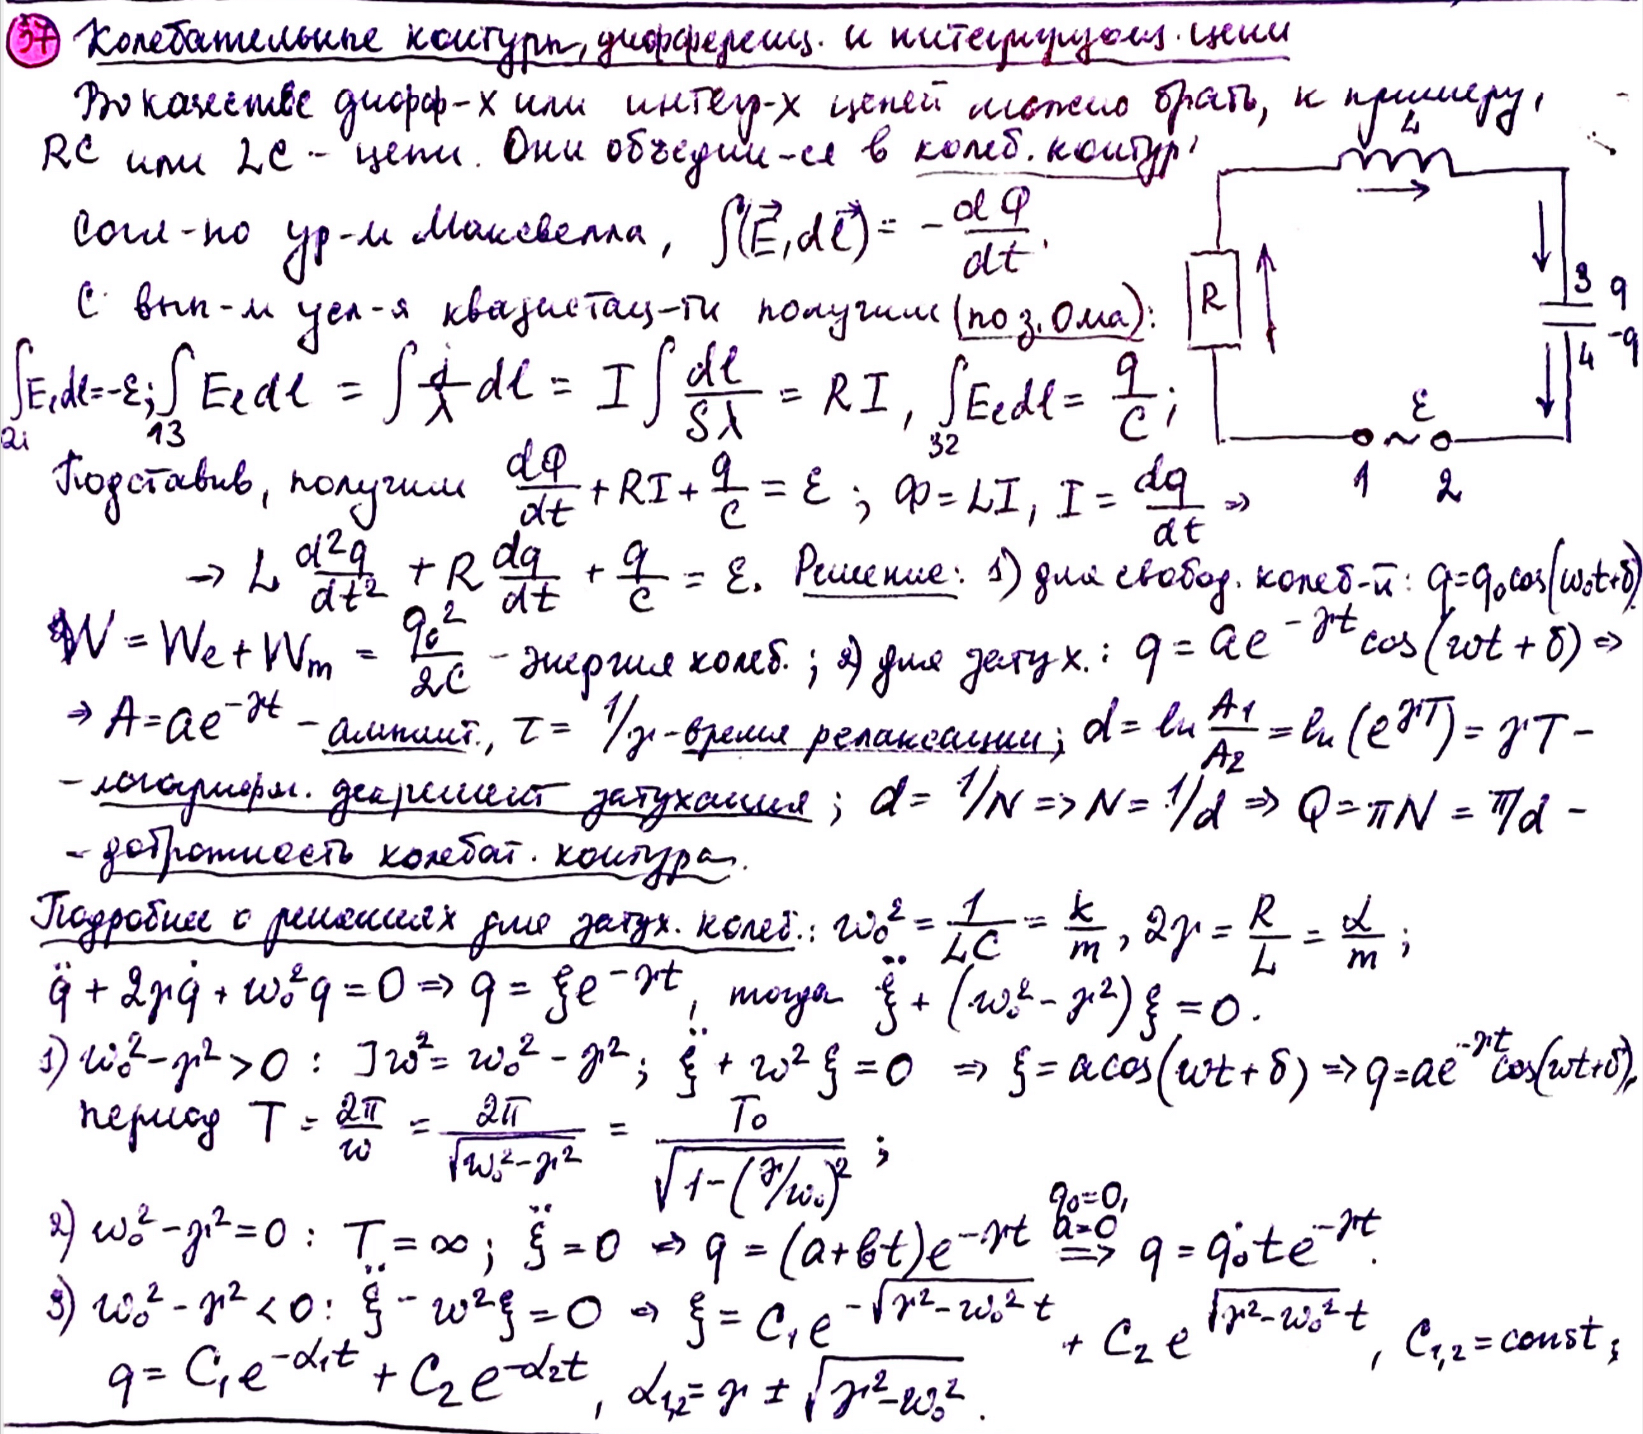 37 Колебательные контуры, дифференц. и интегрующ. цепи
Во качестве дифф-х или интегр-х цепей можно брать, к примеру,
RC или LC - цепи. Они объедин-ся в колеб. контур:
Согл-но ур-м Максвелла, ∫(E⃗, dl⃗) = - dΦ/dt.
С вып-м усл-я квазистац-ти получим (по з. Ома):
∫₂₁ Eₗdl = -ℰ; ∫₁₃ Eₗdl = ∫ j/λ dl = I ∫ dl/Sλ = RI, ∫₃₂ Eₗdl = q/C;
Подставив, получим dΦ/dt + RI + q/C = ℰ; Φ = LI, I = dq/dt ⇒
→ L d²q/dt² + R dq/dt + q/C = ℰ. Решение: 1) для свобод. колеб-й: q = q₀cos(ω₀t+δ)
W = We + Wm = q₀²/2C - энергия колеб.; 2) для затух.: q = ae^(-γt) cos(ωt + δ) ⇒
⇒ A = ae^(-γt) - амплит., τ = 1/γ - время релаксации; d = ln A₁/A₂ = ln(e^(γT)) = γT -
- логарифм. декремент затухания; d = 1/N => N = 1/d ⇒ Q = πN = π/d -
- добротность колебат. контура.
Подробнее о решениях для затух. колеб.: ω₀² = 1/LC = k/m, 2γ = R/L = α/m;
q̈ + 2γq̇ + ω₀²q = 0 ⇒ q = ξe^(-γt), тогда ξ̈ + (ω₀² - γ²)ξ = 0.
1) ω₀² - γ² > 0 : ]ω² = ω₀² - γ²; ξ̈ + ω²ξ = 0 ⇒ ξ = acos(ωt + δ) ⇒ q = ae^(-γt)cos(ωt+δ),
период T = 2π/ω = 2π/√(ω₀² - γ²) = T₀/√(1-(γ/ω₀)²);
2) ω₀² - γ² = 0 : T = ∞; ξ̈ = 0 ⇒ q = (a + bt)e^(-γt) q₀=0, a=0 ⇒ q = q̇₀te^(-γt).
3) ω₀² - γ² < 0 : ξ̈ - ω²ξ = 0 ⇒ ξ = C₁e^(-√(γ²-ω₀²) t) + C₂e^(√(γ²-ω₀²) t), C₁,₂ = const;
q = C₁e^(-α₁t) + C₂e^(-α₂t), α₁,₂ = γ ± √(γ² - ω₀²).
L
R
3 q
4 -q
ℰ
1 ~ 2